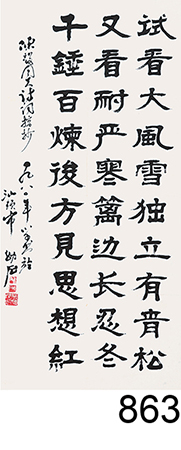 試看大風雪独立有青松
又看耐严寒篱边长忍冬
千錘百煉後方見思想紅
陈毅同志诗词摘抄
863